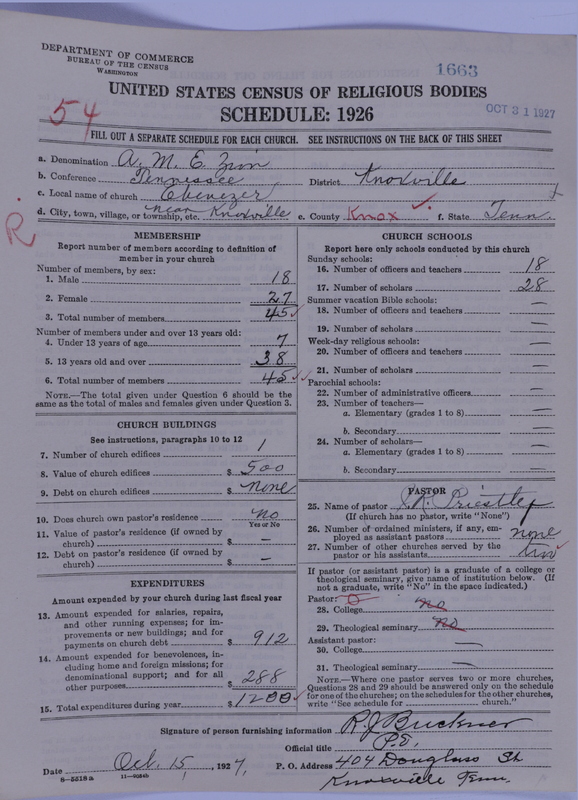 DEPARTMENT OF COMMERCE
BUREAU OF THE CENSUS
WASHINGTON
1663
UNITED STATES CENSUS OF RELIGIOUS BODIES
SCHEDULE: 1926
OCT 31 1927
54
FILL OUT A SEPARATE SCHEDULE FOR EACH CHURCH. SEE INSTRUCTIONS ON THE BACK OF THIS SHEET
a. Denomination A. M. E. Zion
b. Conference Tennessee District Knoxville
c. Local name of church Ebenezer
d. City, town, village, or township, etc. near Knoxville e. County Knox f. State Tenn.
R
MEMBERSHIP
Report number of members according to definition of
member in your church
Number of members, by sex:
1. Male 18
2. Female 27
3. Total number of members 45
Number of members under and over 13 years old:
4. Under 13 years of age 7
5. 13 years old and over 38
6. Total number of members 45
NOTE.—The total given under Question 6 should be
same as the total of males and females given under Question 3.
CHURCH BUILDINGS
See instructions, paragraphs 10 to 12
7. Number of church edifices 1
8. Value of church edifices $ 500
9. Debt on church edifices $ None
10. Does church own pastor's residence No
Yes or No
11. Value of pastor's residence (if owned by
church) $ —
12. Debt on pastor's residence (if owned by
church) $ —
EXPENDITURES
Amount expended by your church during last fiscal year
13. Amount expended for salaries, repairs,
and other running expenses; for im-
provements or new buildings; and for
payments on church debt $ 912
14. Amount expended for benevolences, in-
cluding home and foreign missions; for
denominational support; and for all
other purposes $ 288
15. Total expenditures during year $ 1200
CHURCH SCHOOLS
Report here only schools conducted by this church
Sunday schools:
16. Number of officers and teachers 18
17. Number of scholars 28
Summer vacation Bible schools:
18. Number of officers and teachers —
19. Number of scholars —
Week-day religious schools: —
20. Number of officers and teachers —
21. Number of scholars —
Parochial schools:
22. Number of administrative officers —
23. Number of teachers—
a. Elementary (grades 1 to 8) —
b. Secondary —
24. Number of scholars—
a. Elementary (grades 1 to 8) —
b. Secondary —
PASTOR
25. Name of pastor Priestley
(If church has no pastor, write "None")
26. Number of ordained ministers, if any, em-
ployed as assistant pastors none
27. Number of other churches served by the
pastor or his assistants
If pastor (or assistant pastor) is a graduate of a college or
theological seminary, give name of institution below. (If
not a graduate, write "No" in the space indicated.)
Pastor: 0
28. College no
29. Theological seminary No
Assistant pastor:
30. College —
31. Theological seminary —
NOTE.—Where one pastor serves two or more churches,
Questions 28 and 29 should be answered only on the schedule
for one of the churches; on the schedules for the other churches,
write "See schedule for church."
Signature of person furnishing information R. J. Buckner
Official title P. E.
Date Oct. 15, 1927. P. O. Address 404 Douglass St
8-5518a Knoxville Tenn.